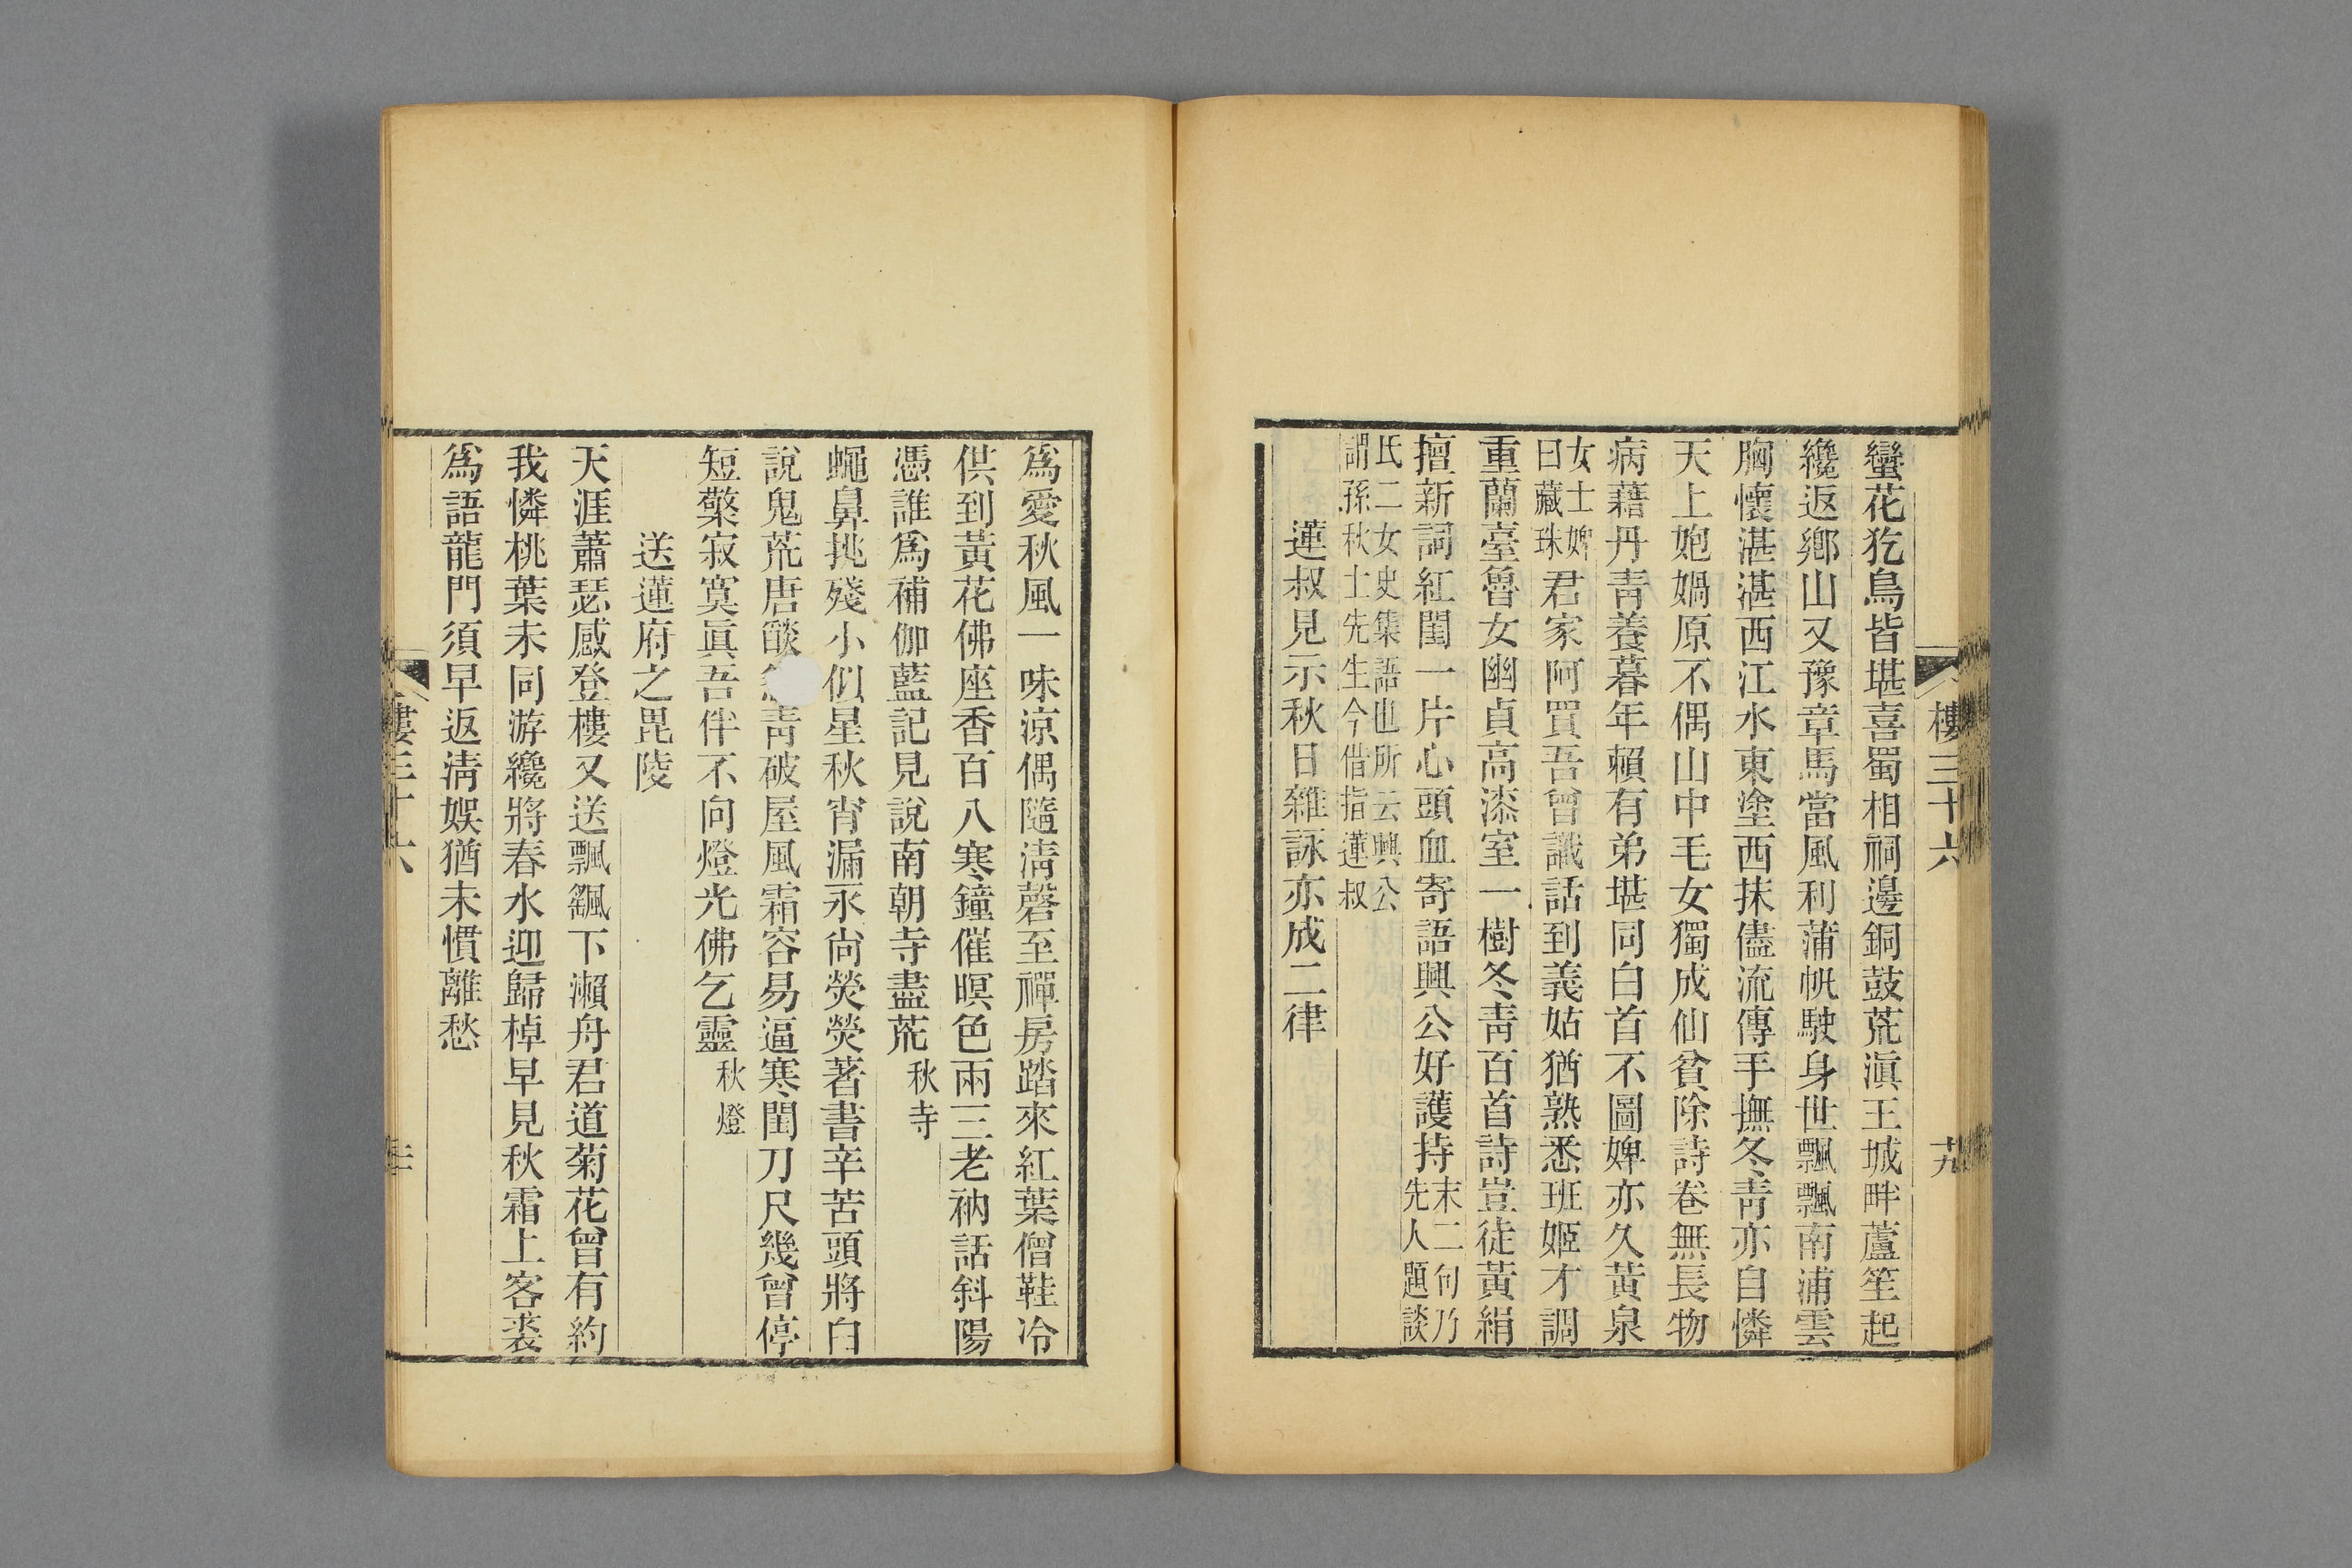 樓三十六
廿九
蠻花犵鳥皆堪喜蜀相祠邊銅鼓荒滇王城畔蘆笙起
纔返鄉山又豫章馬當風利蒲帆駛身世飄飄南浦雲
胸懷湛湛西江水東塗西抹儘流傳手撫冬靑亦自憐
天上媿媧原不偶山中毛女獨成仙貧除詩卷無長物
病藉丹靑養暮年賴有弟堪同白首不圖婢亦久黃泉
女士婢
曰藏珠
君家阿買吾曾識話到義姑猶熟悉班姬才調
重蘭臺魯女幽貞高漆室一樹冬靑百首詩豈徒黃絹
擅新詞紅閨一片心頭血寄語興公好護持
末二句乃
先人題談
氏二女史集語也所云興公
謂孫秋士先生今借指蓮叔
蓮叔見示秋日雜詠亦成二律
爲愛秋風一味涼偶隨淸磬至禪房踏來紅葉僧鞋冷
供到黃花佛座香百八寒鐘催暝色兩三老衲話斜陽
憑誰爲補伽藍記見說南朝寺盡荒
秋寺
蠅鼻挑殘小似星秋宵漏永尙熒熒著書辛苦頭將白
說鬼荒唐燄靑破屋風霜容易逼寒閨刀尺幾曾停
短檠寂寞眞吾伴不向燈光佛乞靈
秋燈
送蓮府之毘陵
天涯蕭瑟感登樓又送飄颻下瀨舟君道菊花曾有約
我憐桃葉未同游纔將春水迎歸棹早見秋霜上客裘
爲語龍門須早返淸娛猶未慣離愁
樓三十六